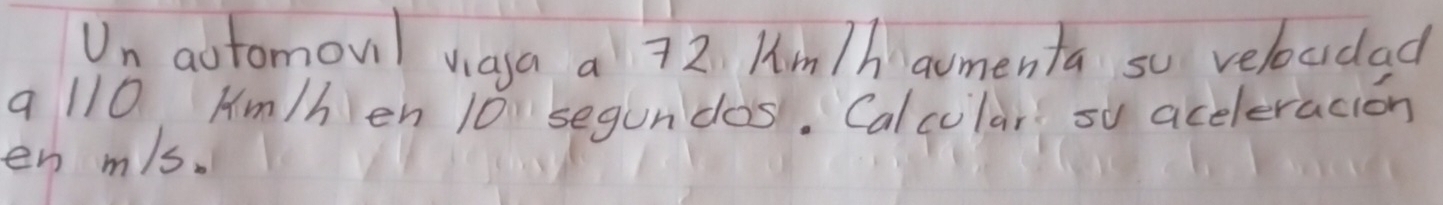 Un automovil viaja a 72 Km/h aumenta su velocidad
a 110 Km/h en 10 segundos. Calcular su aceleración
en m/s.